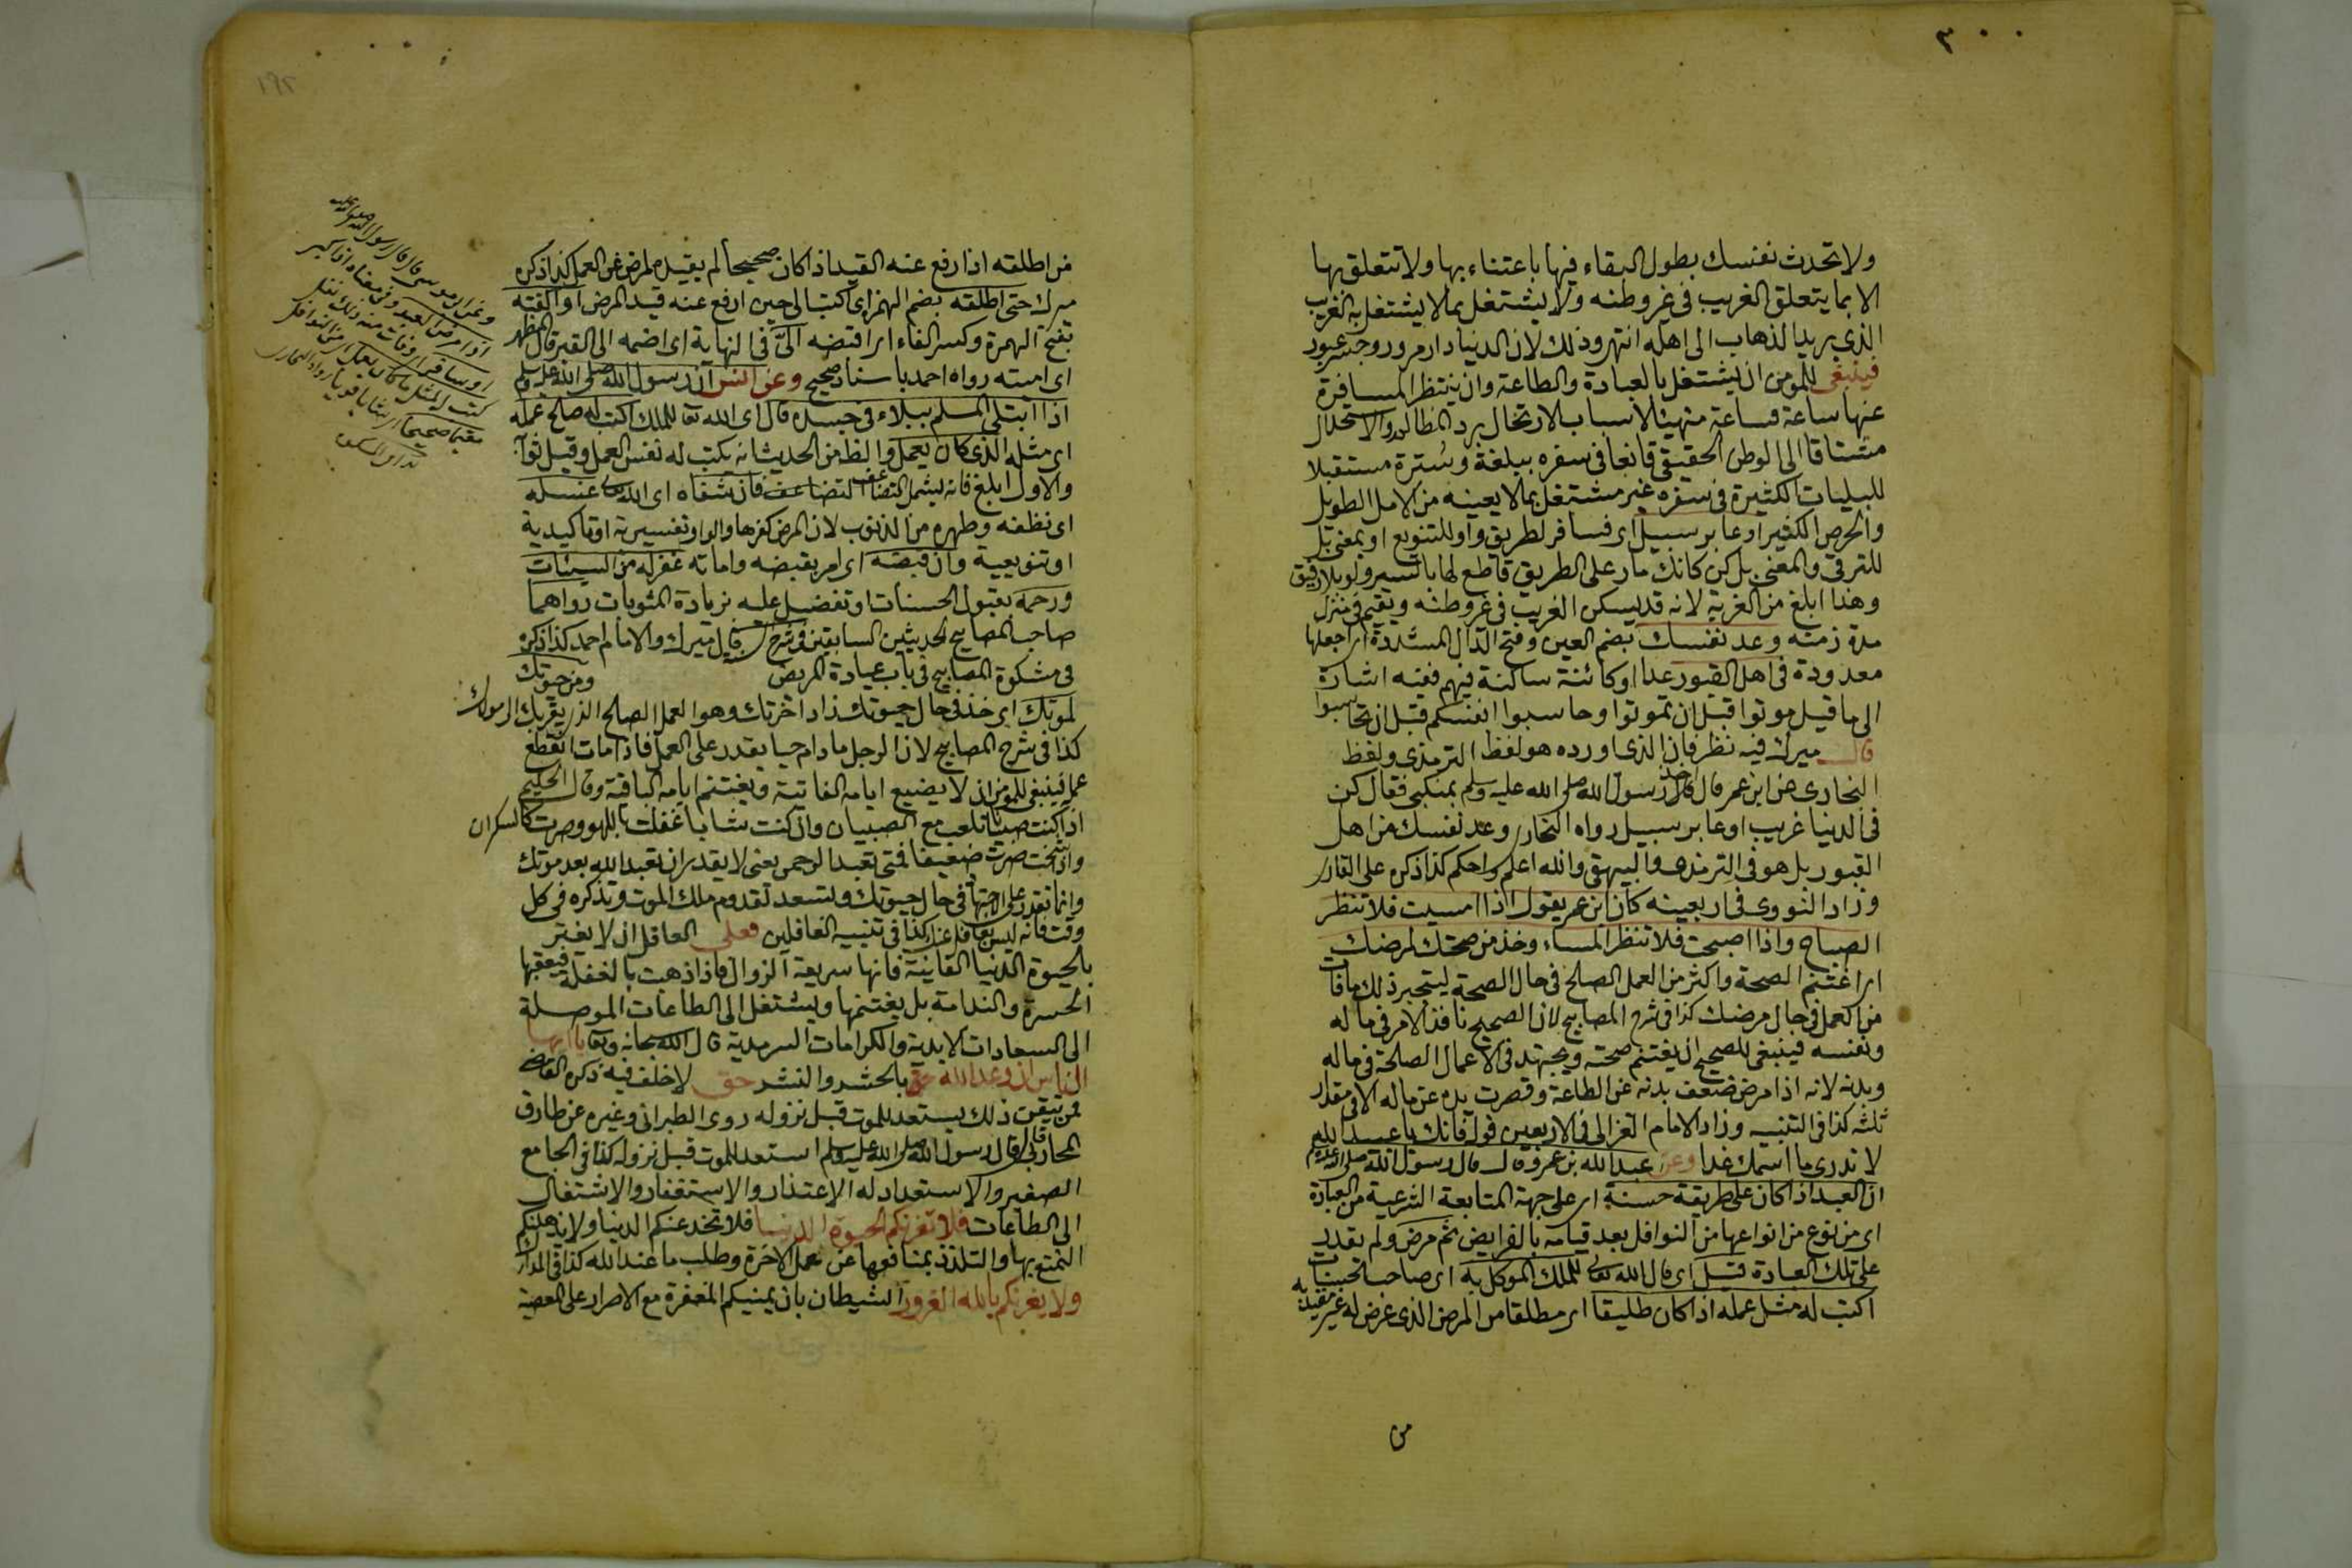 ٣٠٠
ولا تحدث نفسك بطول البقاء فيها باعتناء بها ولا تتعلق بها
الا بما يتعلق الغريب فى غير وطنه ولا يشتغل بما لا يشتغل به الغريب
الذى يريد الذهاب الى اهله انتهى وذلك لان الدنيا دار مرور وجسر عبور
فينبغى للمؤمن ان يشتغل بالعبادة والطاعة وان ينتظر المسافرة
عنها ساعة فساعة متهيئا لاسباب الارتحال برد المظالم والاستحلال
مشتاقا الى الوطن الحقيقى قانعا فى سفره ببلغة وسترة مستقبلا
للبليات الكثيرة فى سفره غير مشتغل بما لا يعينه من الامل الطويل
والحرص الكثير او عابر سبيل اى مسافر لطريق واو للتنويع او بمعنى بل
للترقى والمعنى بل كن كانك مار على الطريق قاطع لها بالسير ولو بلا رفيق
وهذا ابلغ من الغربة لانه قد يسكن الغريب فى غير وطنه ويقيم فى منزل
مدة زمنه وعد نفسك بضم العين وفتح الدال المشددة اى اجعلها
معدودة فى اهل القبور عدا او كائنة ساكنة فيهم ففيه اشارة
الى ما قيل موتوا قبل ان تموتوا وحاسبوا انفسكم قبل ان تحاسبوا
قال ميرك فيه نظر فان الذى اورده هو لفظ الترمذى ولفظ
البخارى عن ابن عمر قال اخذ رسول الله صلى الله عليه وسلم بمنكبى فقال كن
فى الدنيا غريب او عابر سبيل رواه البخارى وعد نفسك من اهل
القبور بل هو فى الترمذى والبيهقى والله اعلم واحكم كذا ذكره على القارى
وزاد النووى فى اربعينه كان ابن عمر يقول اذا امسيت فلا تنتظر
الصباح واذا اصبحت فلا تنتظر المساء وخذ من صحتك لمرضك
اى اغتنم الصحة واكثر من العمل الصالح فى حال الصحة ليتجبر ذلك ما فات
من العمل فى حال مرضك كذا فى شرح المصابيح لان الصحيح نافذ الامر فى ماله
ونفسه فينبغى للصحيح ان يغتنم صحته ويجتهد فى الاعمال الصالحة فى ماله
وبدنه لانه اذا مرض ضعف بدنه عن الطاعة وقصرت يده عن ماله الا فى مقدار
ثلثه كذا فى التنبيه وزاد الامام الغزالى فى الاربعين قوله فانك يا عبد الله
لا تدرى ما اسمك غدا وعن عبد الله بن عمرو قال قال رسول الله صلى الله عليه وسلم
ان العبد اذا كان على طريقة حسنة اى على جهة المتابعة الشرعية من العبادة
اى من نوع من انواعها من النوافل بعد قيامه بالفرايض ثم مرض ولم يقدر
على تلك العبادة قيل اى قال الله تعالى للملك الموكل به اى صاحب الحسنات
اكتب له مثل عمله اذا كان طليقا اى مطلقا من المرض الذى عرض له غير مقيد به
من
من اطلقه اذا رفع عنه القيد اذا كان صحيحا لم يقيده المرض عن العمل كذا ذكره
ميرك حتى اطلقه بضم الهمزة اى كتب الى حين ارفع عنه قيد المرض او الفته
بفتح الهمزة وكسر الفاء اى اقبضه الىّ فى النهاية اى اضمه الى القبر قال المظهر
اى اميته رواه احمد باسناد صحيح وعن انس ان رسول الله صلى الله عليه وسلم
اذا ابتلى المسلم ببلاء فى جسده قال اى الله تعالى للملك اكتب له صالح عمله
اى مثله الذى كان يعمل والظ من الحديث انه يكتب له نفس العمل وقيل ثوابه
والاول ابلغ فانه ليشمل التضاعف فان شفاه اى الله تعالى غسله
اى نظفه وطهره من الذنوب لان المرض كفرها والواو تفسيرية او تاكيدية
او تنويعية وان قبضه اى امر بقبضه واماته غفر له من السيئات
ورحمه بقبول الحسنات او تفضل عليه بزيادة المثوبات رواهما
صاحب المصابيح الحديثين السابقين وشرح قال ميرك والامام احمد كذا ذكره
فى مشكوة المصابيح فى باب عيادة المريض ومن حيوتك
لموتك اى خذ فى حال حيوتك زاد اخرتك وهو العمل الصالح الذى يقربك الى مولاك
كذا فى شرح المصابيح لان الرجل ما دام حيا يقدر على العمل فاذا مات انقطع
عمله فينبغى للمؤمن ان لا يضيع ايامه الفانية ويغتنم ايامه الباقية وقال الحكيم
اذا كنت صبيا تلعب مع الصبيان وان كنت شابا غفلت باللهو وصرت كالسكران
واذا شخت صرت ضعيفا فمتى تعبد الرحمن يعنى لا يقدر ان تعبد الله بعد موتك
وانما تقدر على الاجتهاد فى حال حيوتك وتستعد لقدوم ملك الموت وتذكره فى كل
وقت فانه ليس بغافل عنك كذا فى تنبيه الغافلين فعلى العاقل ان لا يغتر
بالحيوة الدنيا الفانية فانها سريعة الزوال فاذا ذهبت بالغفلة فيعقبها
الحسرة والندامة بل يغتنمها ويشتغل الى الطاعات الموصلة
الى السعادات الابدية والكرامات السرمدية قال الله سبحانه وتعالى يا ايها
الناس ان وعد الله بالحشر والنشر حق لا خلف فيه ذكره القاضى
فمن تيقن ذلك يستعد للموت قبل نزوله روى الطبرانى وغيره عن طارق
المحاربى قال قال رسول الله صلى الله عليه وسلم استعد للموت قبل نزوله كذا فى الجامع
الصغير والاستعداد له الاعتذار والاستغفار والاشتغال
الى الطاعات فلا تغرنكم الحيوة الدنيا فلا تخدعنكم الدنيا ولا يذهلنكم
التمتع بها والتلذذ بمنافعها عن عمل الاخرة وطلب ما عند الله كذا فى المدارك
ولا يغرنكم بالله الغرور الشيطان بان يمنيكم المغفرة مع الاصرار على المعصية
وعن ابى موسى قال قال رسول الله صلى الله عليه
اذا مرض العبد وفى معناه اذا كبر
او سافر اى وفات منه ذلك نفل
كتب له مثل ما كان يعمل اى من النوافل
مقيما صحيحا اى شابا قويا رواه البخارى